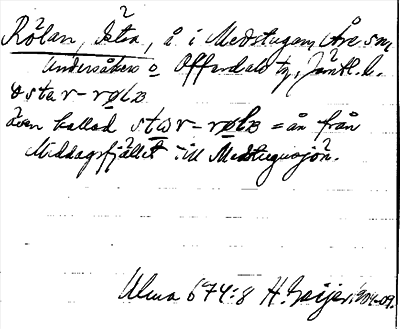 Rölan, Östra, å i Medstugan, Åre sn,
Undersåkers o Offerdals tg, Jämtl. l.
østa r-rølɒ
även kallad star-rølɒ = ån från
Middagsfjället till Medstugusjön.
Ulma 674:8 H. Geijer 1904-09.